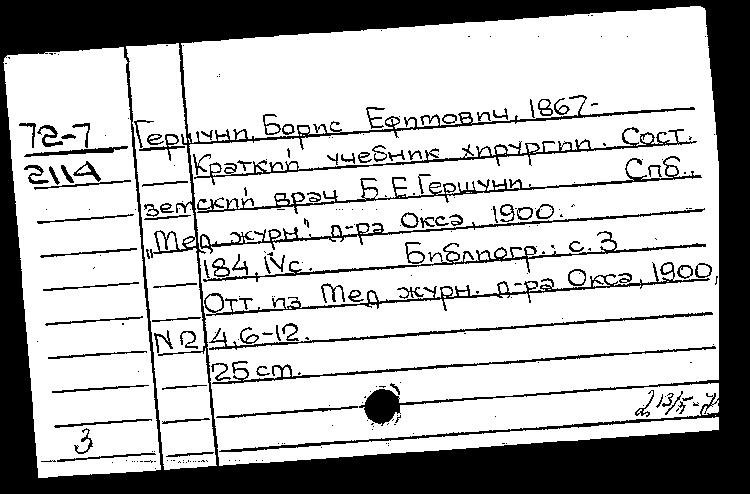 72-7
2114
Гершуни, Борис Ефимович, 1867-
Краткий учебник хирургии. Сост.
земский врач Б.Е.Гершуни. Спб.,
„Мед. журн." д-ра Окса, 1900.
184, IV с. Библиогр.: с. 3
Отт. из Мед. журн. д-ра Окса, 1900,
N 2, 4, 6-12.
25 см.
3